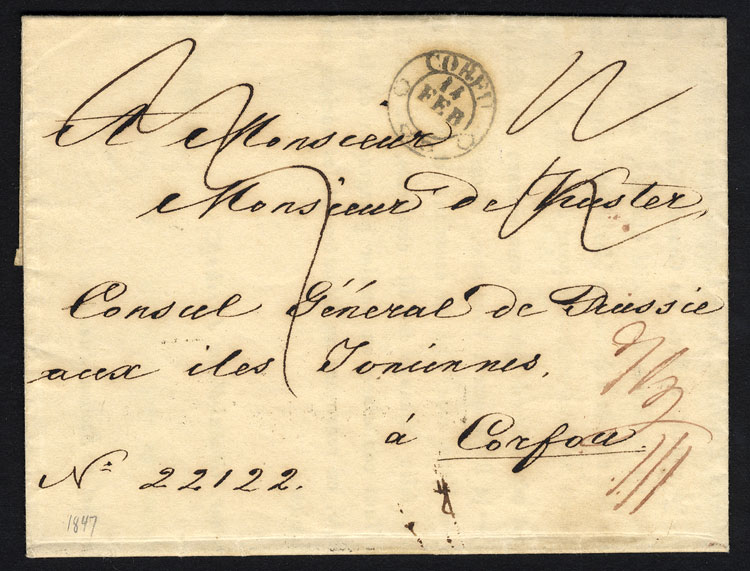 CORFU
14
FEB
A Monsieur
Monsieur de Kuster
Consul Général de Prussie
aux iles Joniennes.
à Corfou.
No. 22122.
1847